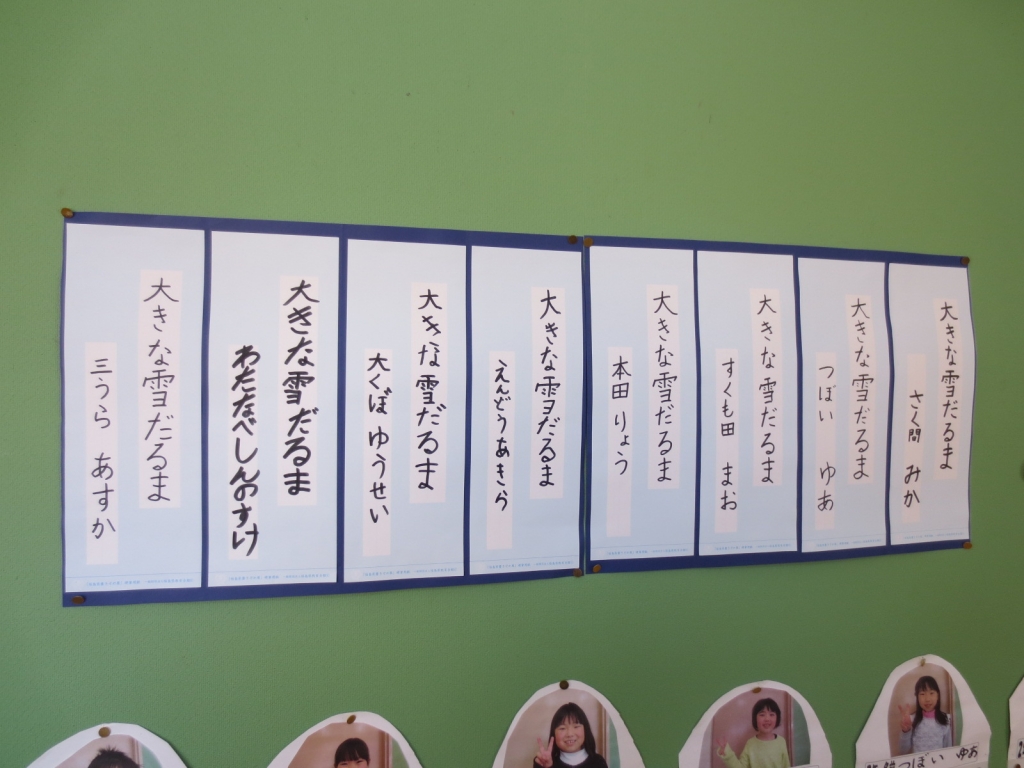 大きな雪だるま
さく間 みか
大きな雪だるま
つぼい ゆあ
大きな雪だるま
すくも田 まお
大きな雪だるま
本田 りょう
大きな雪だるま
えんどうあきら
大きな雪だるま
大くぼ ゆうせい
大きな雪だるま
わたなべしんのすけ
大きな雪だるま
三うら あすか
つぼい ゆあ